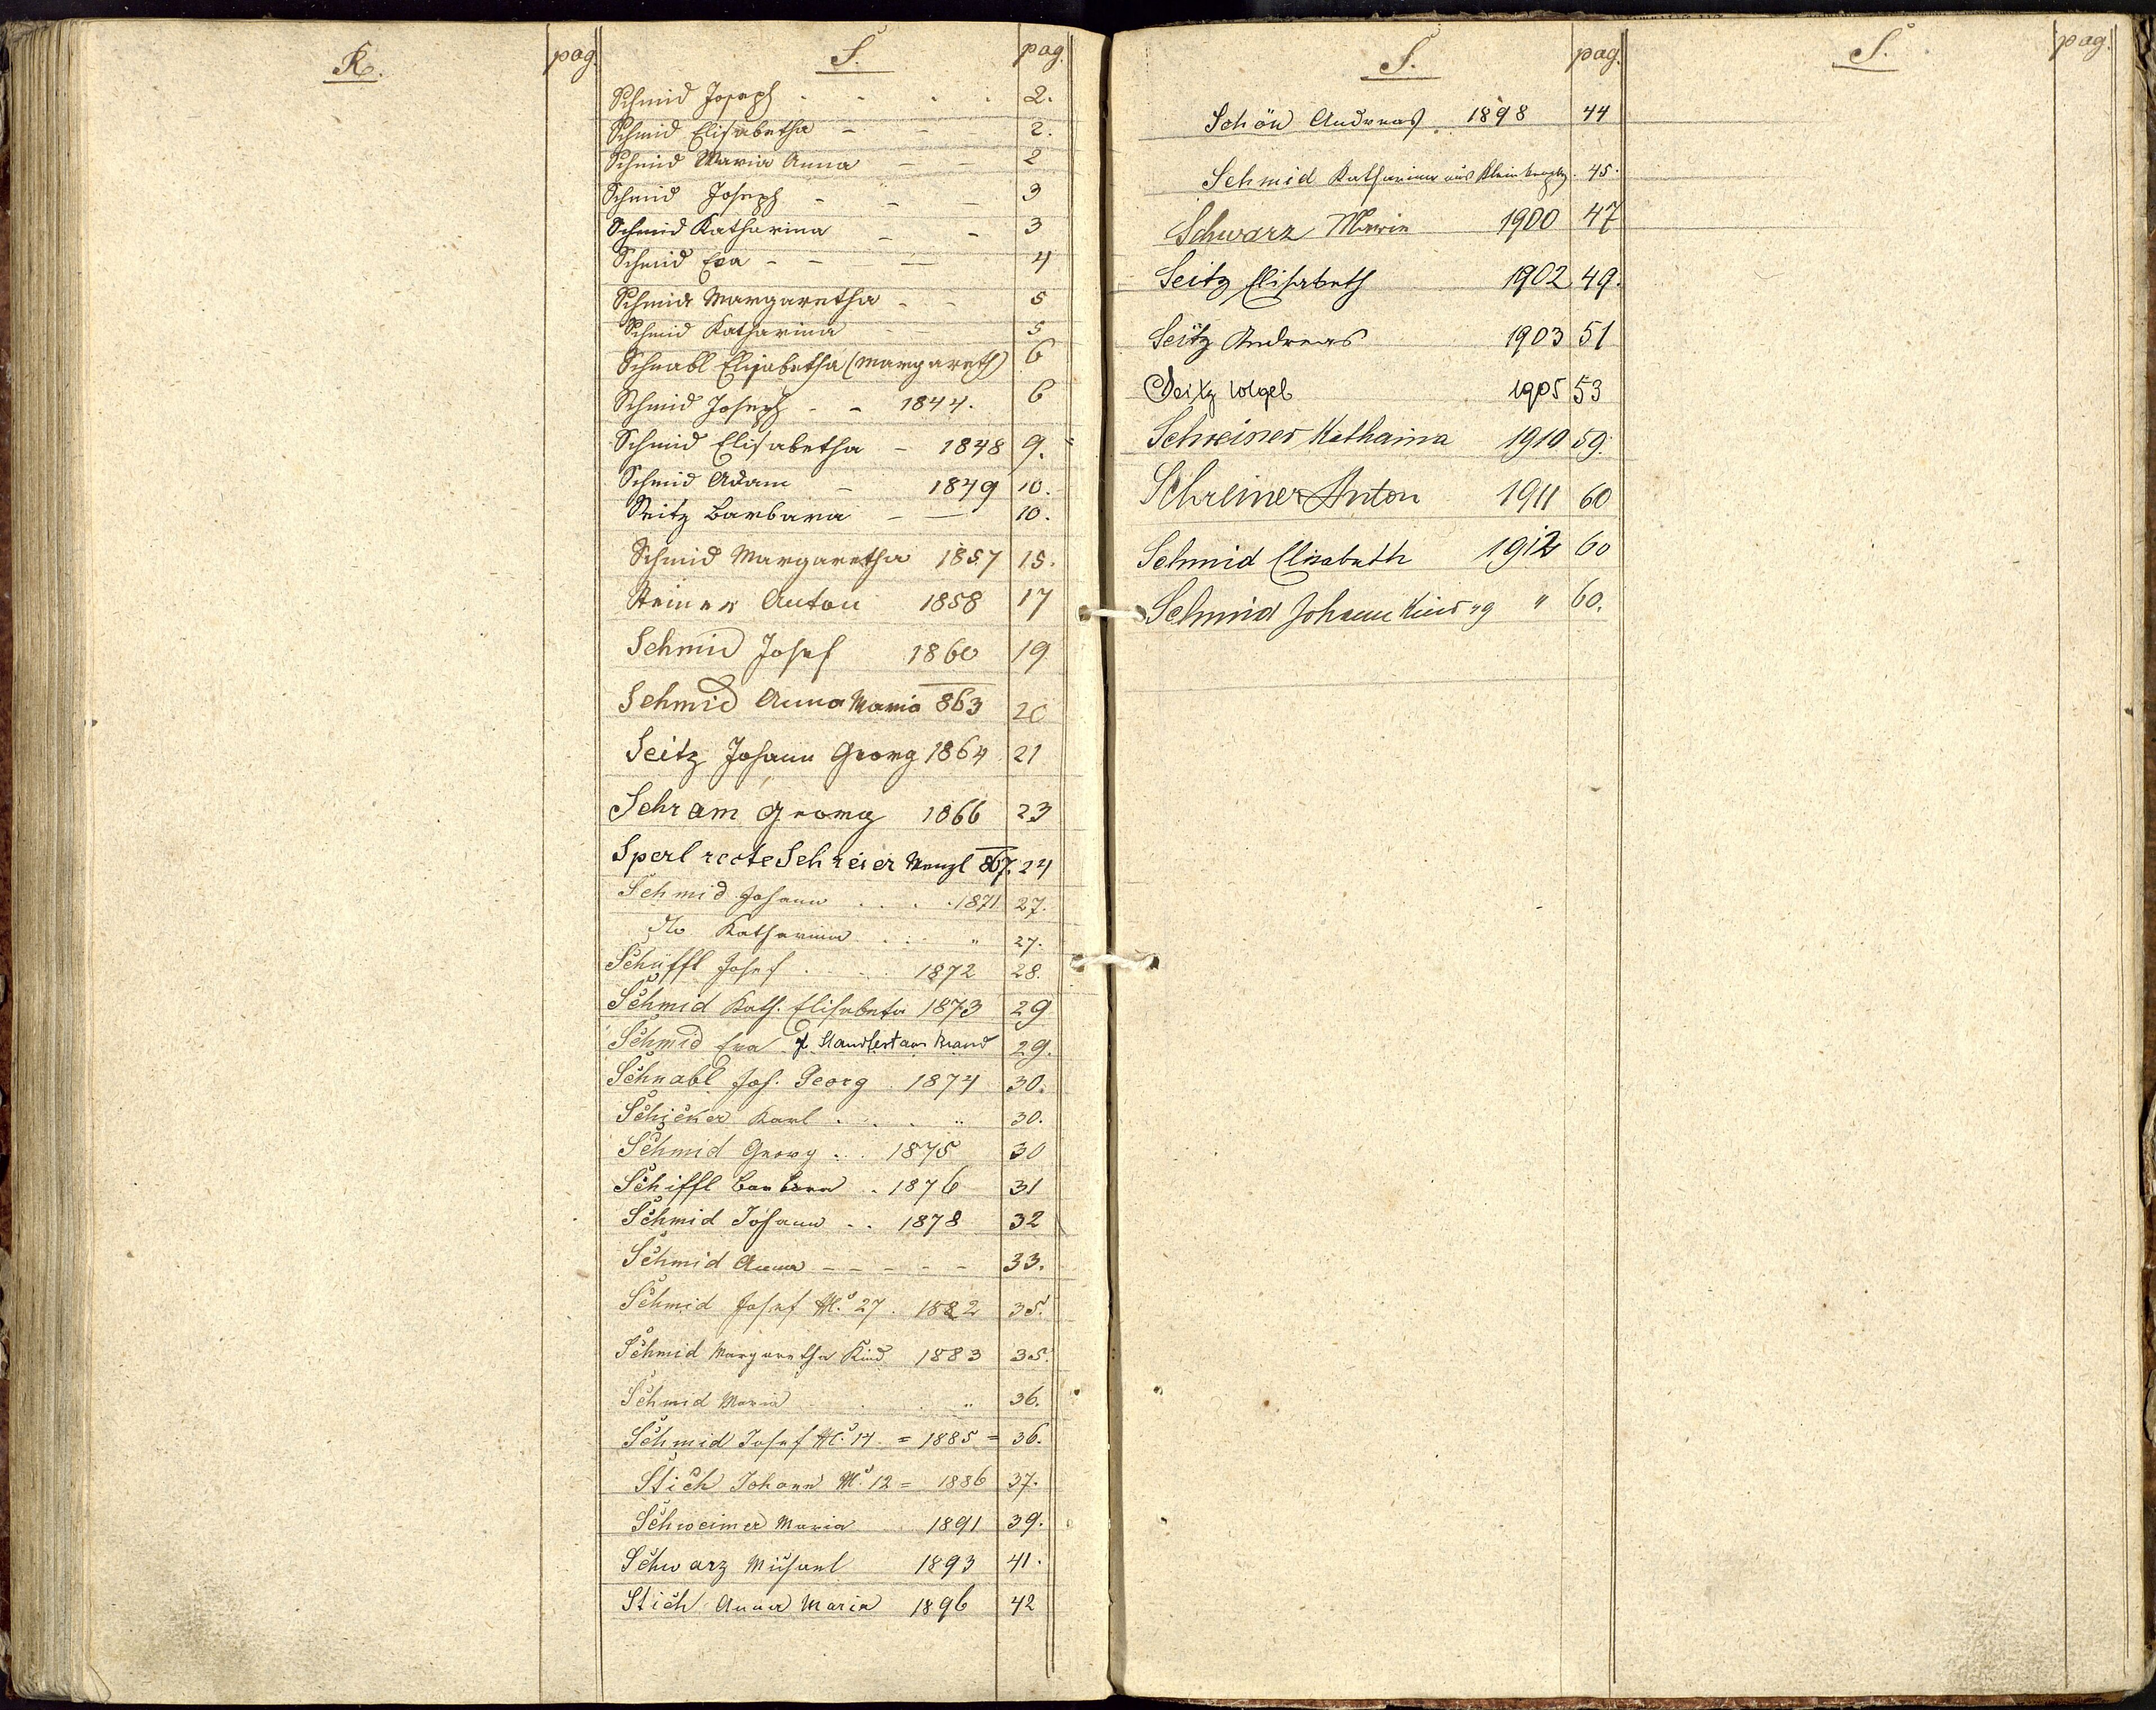 R.
pag.
S.
pag.
Schmid Joseph - - - - 2.
Schmid Elisabetha - - 2.
Schmid Maria Anna - - 2
Schmid Joseph - - - 3
Schmid Katharina - - 3
Schmid Eva - - - 4
Schmid Margaretha - - 5
Schmid Katharina - - 5
Schnabl Elisabetha (Margareth) 6
Schmid Joseph - - 1844. 6
Schmid Elisabetha - 1848 9.
Schmid Adam - 1849 10.
Seitz Barbara - - 10.
Schmid Margaretha 1857 15.
Steiner Anton 1858 17
Schmid Josef 1860 19
Schmid Anna Maria 863 20
Seitz Johann Georg 1864 21
Schram Georg 1866 23
Sperl recte Schreier Wenzl 867. 24
Schmid Johann . . . . 1871 27.
dto Katharina . . . " 27.
Schüffl Josef . . . . 1872 28.
Schmid Kath. Elisabeta 1873 29
Schmid Eva aus Brand 29.
Schnabl Joh. Georg . 1874 30.
Schicker Karl . . . . " 30.
Schmid Georg . . . 1875 30
Schiffl Barbara . . 1876 31
Schmid Johann . . 1878 32
Schmid Anna - - - - - 33.
Schmid Josef N.º 27. 1882 35.
Schmid Margaretha Kind 1883 35.
Schmid Maria . . . " 36.
Schmid Josef N.º 14. = 1885 = 36.
Stich Johann N.º 12 = 1886 37.
Schweimer Maria 1891 39.
Schwarz Michael 1893 41.
Stich Anna Maria 1896 42
S.
pag.
Schön Andreas . 1898 44
Schmid Katharina aus 45.
Schwarz Maria 1900 47
Seitz Elisabeth 1902 49.
Seitz Andreas 1903 51
Seitz 1905 53
Schreiner Kathaina 1910 59.
Schreiner Anton 1911 60
Schmid Elisabeth 1912 60
Schmid Johann Kind " 60.
S.
pag.